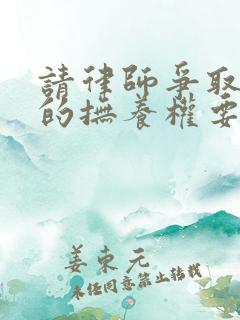 請律師爭取
的撫養權要
姜東元
未經同意禁止轉載